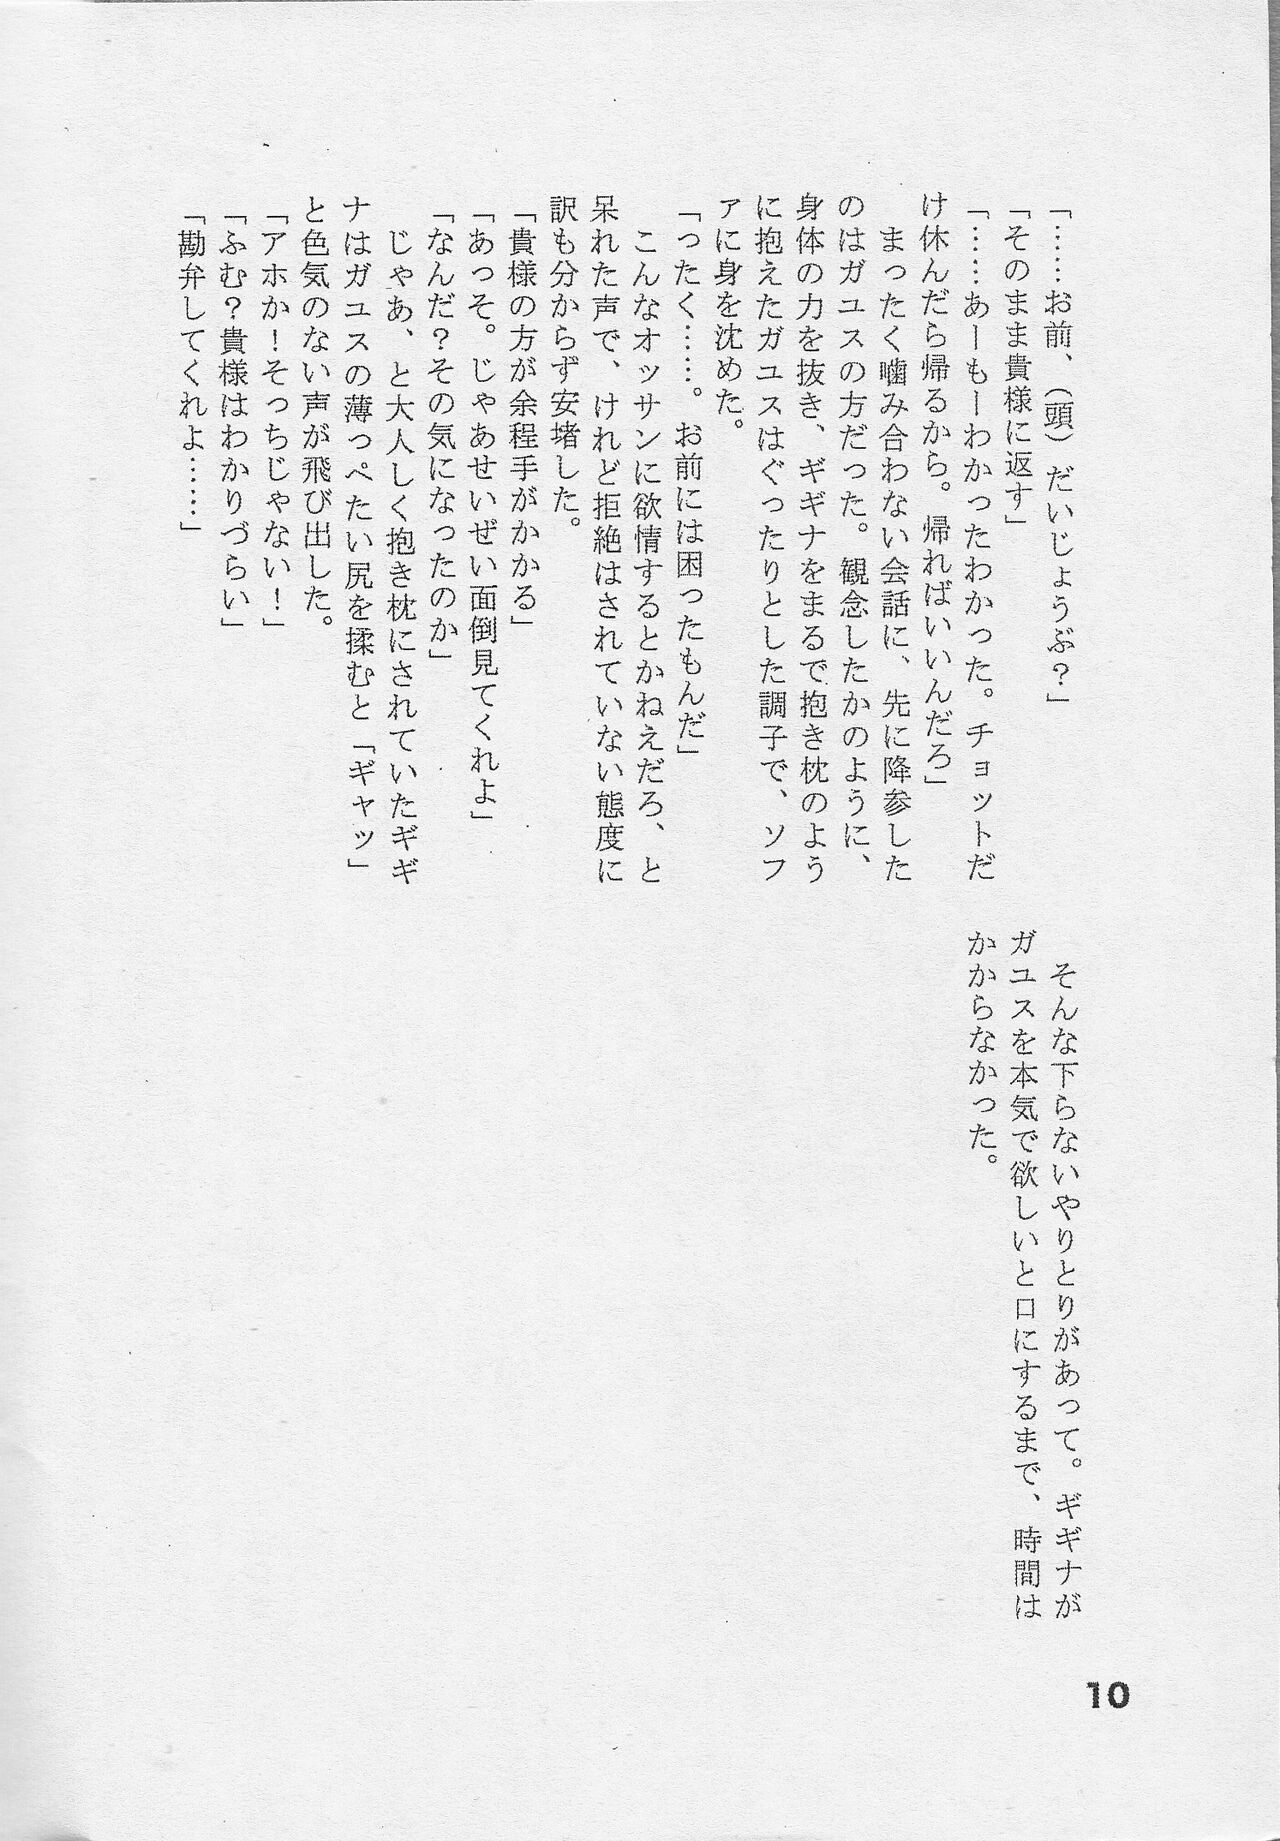 「……お前、(頭)だいじょうぶ?」
「そのまま貴様に返す」
「……あーもーわかったわかった。チョットだ
け休んだら帰るから。帰ればいいんだろ」
　まったく噛み合わない会話に、先に降参した
のはガユスの方だった。観念したかのように、
身体の力を抜き、ギギナをまるで抱き枕のよう
に抱えたガユスはぐったりとした調子で、ソフ
ァに身を沈めた。
「ったく……。お前には困ったもんだ」
　こんなオッサンに欲情するとかねえだろ、と
呆れた声で、けれど拒絶はされていない態度に
訳も分からず安堵した。
「貴様の方が余程手がかかる」
「あっそ。じゃあせいぜい面倒見てくれよ」
「なんだ?その気になったのか」
　じゃあ、と大人しく抱き枕にされていたギギ
ナはガユスの薄っぺたい尻を揉むと「ギャッ」
と色気のない声が飛び出した。
「アホか!そっちじゃない!」
「ふむ?貴様はわかりづらい」
「勘弁してくれよ……」
　そんな下らないやりとりがあって。ギギナが
ガユスを本気で欲しいと口にするまで、時間は
かからなかった。
10